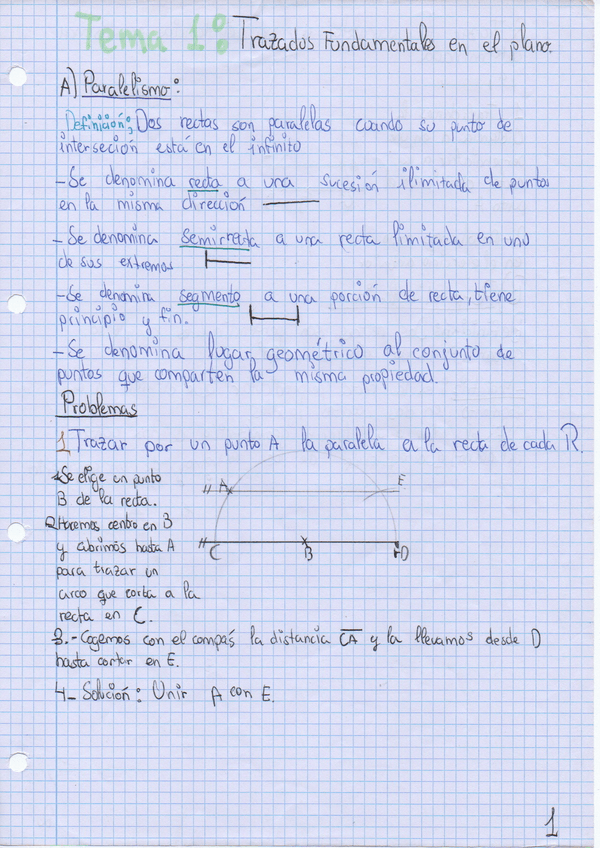 Tema 1: Trazados Fundamentales en el plano.
A) Paralelismo:
Definición: Dos rectas son paralelas cuando su punto de
interseción está en el infinito
- Se denomina recta a una sucesión ilimitada de puntos
en la misma dirección
- Se denomina semirrecta a una recta limitada en uno
de sus extremos
- Se denomina segmento a una porción de recta, tiene
principio y fin.
- Se denomina lugar geométrico al conjunto de
puntos que comparten la misma propiedad.
Problemas
1 Trazar por un punto A la paralela a la recta de cada R.
1 Se elige un punto
B de la recta.
2 Haremos centro en B
y abrimos hasta A
para trazar un
arco que corta a la
recta en C.
A E
C B D
3.- Cogemos con el compás la distancia CA y la llevamos desde D
hasta cortar en E.
4- Solución: Unir A con E.
1